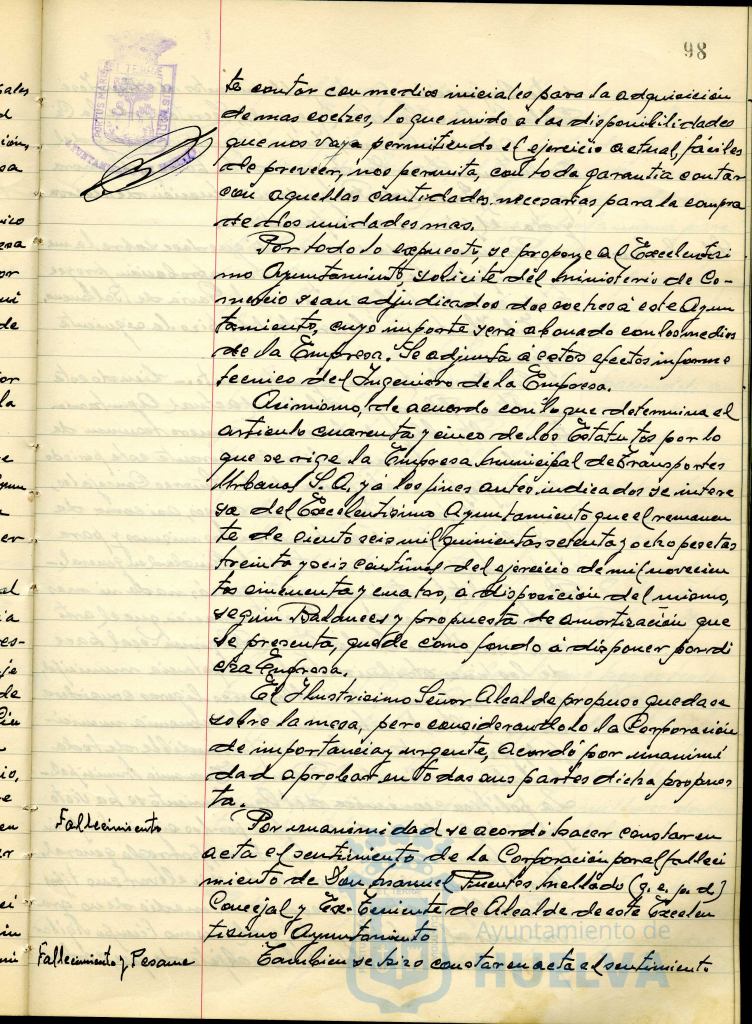 98
te contar con medios iniciales para la adquisición
de mas coches, lo que unido a las disponibilidades
que nos vaya permitiendo el ejercicio actual, fáciles
de preveer, nos permita, con toda garantia contar
con aquellas cantidades necesarias para la compra
de dos unidades mas.
Por todo lo expuesto, se propone al Excelentísi
mo Ayuntamiento, solicite del Ministerio de Co-
mercio sean adjudicados dos coches á este Ayun
tamiento, cuyo importe será abonado con los medios
de la Empresa. Se adjunta á estos efectos informe
tecnico del Ingeniero de la Empresa.
Asimismo, de acuerdo con lo que determina el
articulo cuarenta y cinco de los Estatutos por lo
que se rige la Empresa Municipal de Transportes
Urbanos S.A. y á los fines antes indicados se intere
sa del Excelentísimo Ayuntamiento que el remanen
te de ciento seis mil quinientas setenta y ocho pesetas
treinta y seis céntimos del ejercicio de mil novecien
tos cincuenta y cuatro, á disposición del mismo,
segun Balances y propuesta de amortización que
se presenta, quede como fondo á disponer por di
cha Empresa.
El Ilustrísimo Señor Alcalde propuso quedase
sobre la mesa, pero considerandolo la Corporación
de importancia y urgente, acordó por unanimi
dad aprobar en todas sus partes dicha propues
ta.
Fallecimiento
Por unanimidad se acordó hacer constar en
acta el sentimiento de la Corporación por el falleci
miento de Don Manuel Fuentes Mellado (q.e.p.d)
Concejal y Ex-Teniente de Alcalde de este Excelen
tísimo Ayuntamiento
Fallecimiento y Pesame
Tambien se hizo constar en acta el sentimiento
Ayuntamiento de
HUELVA